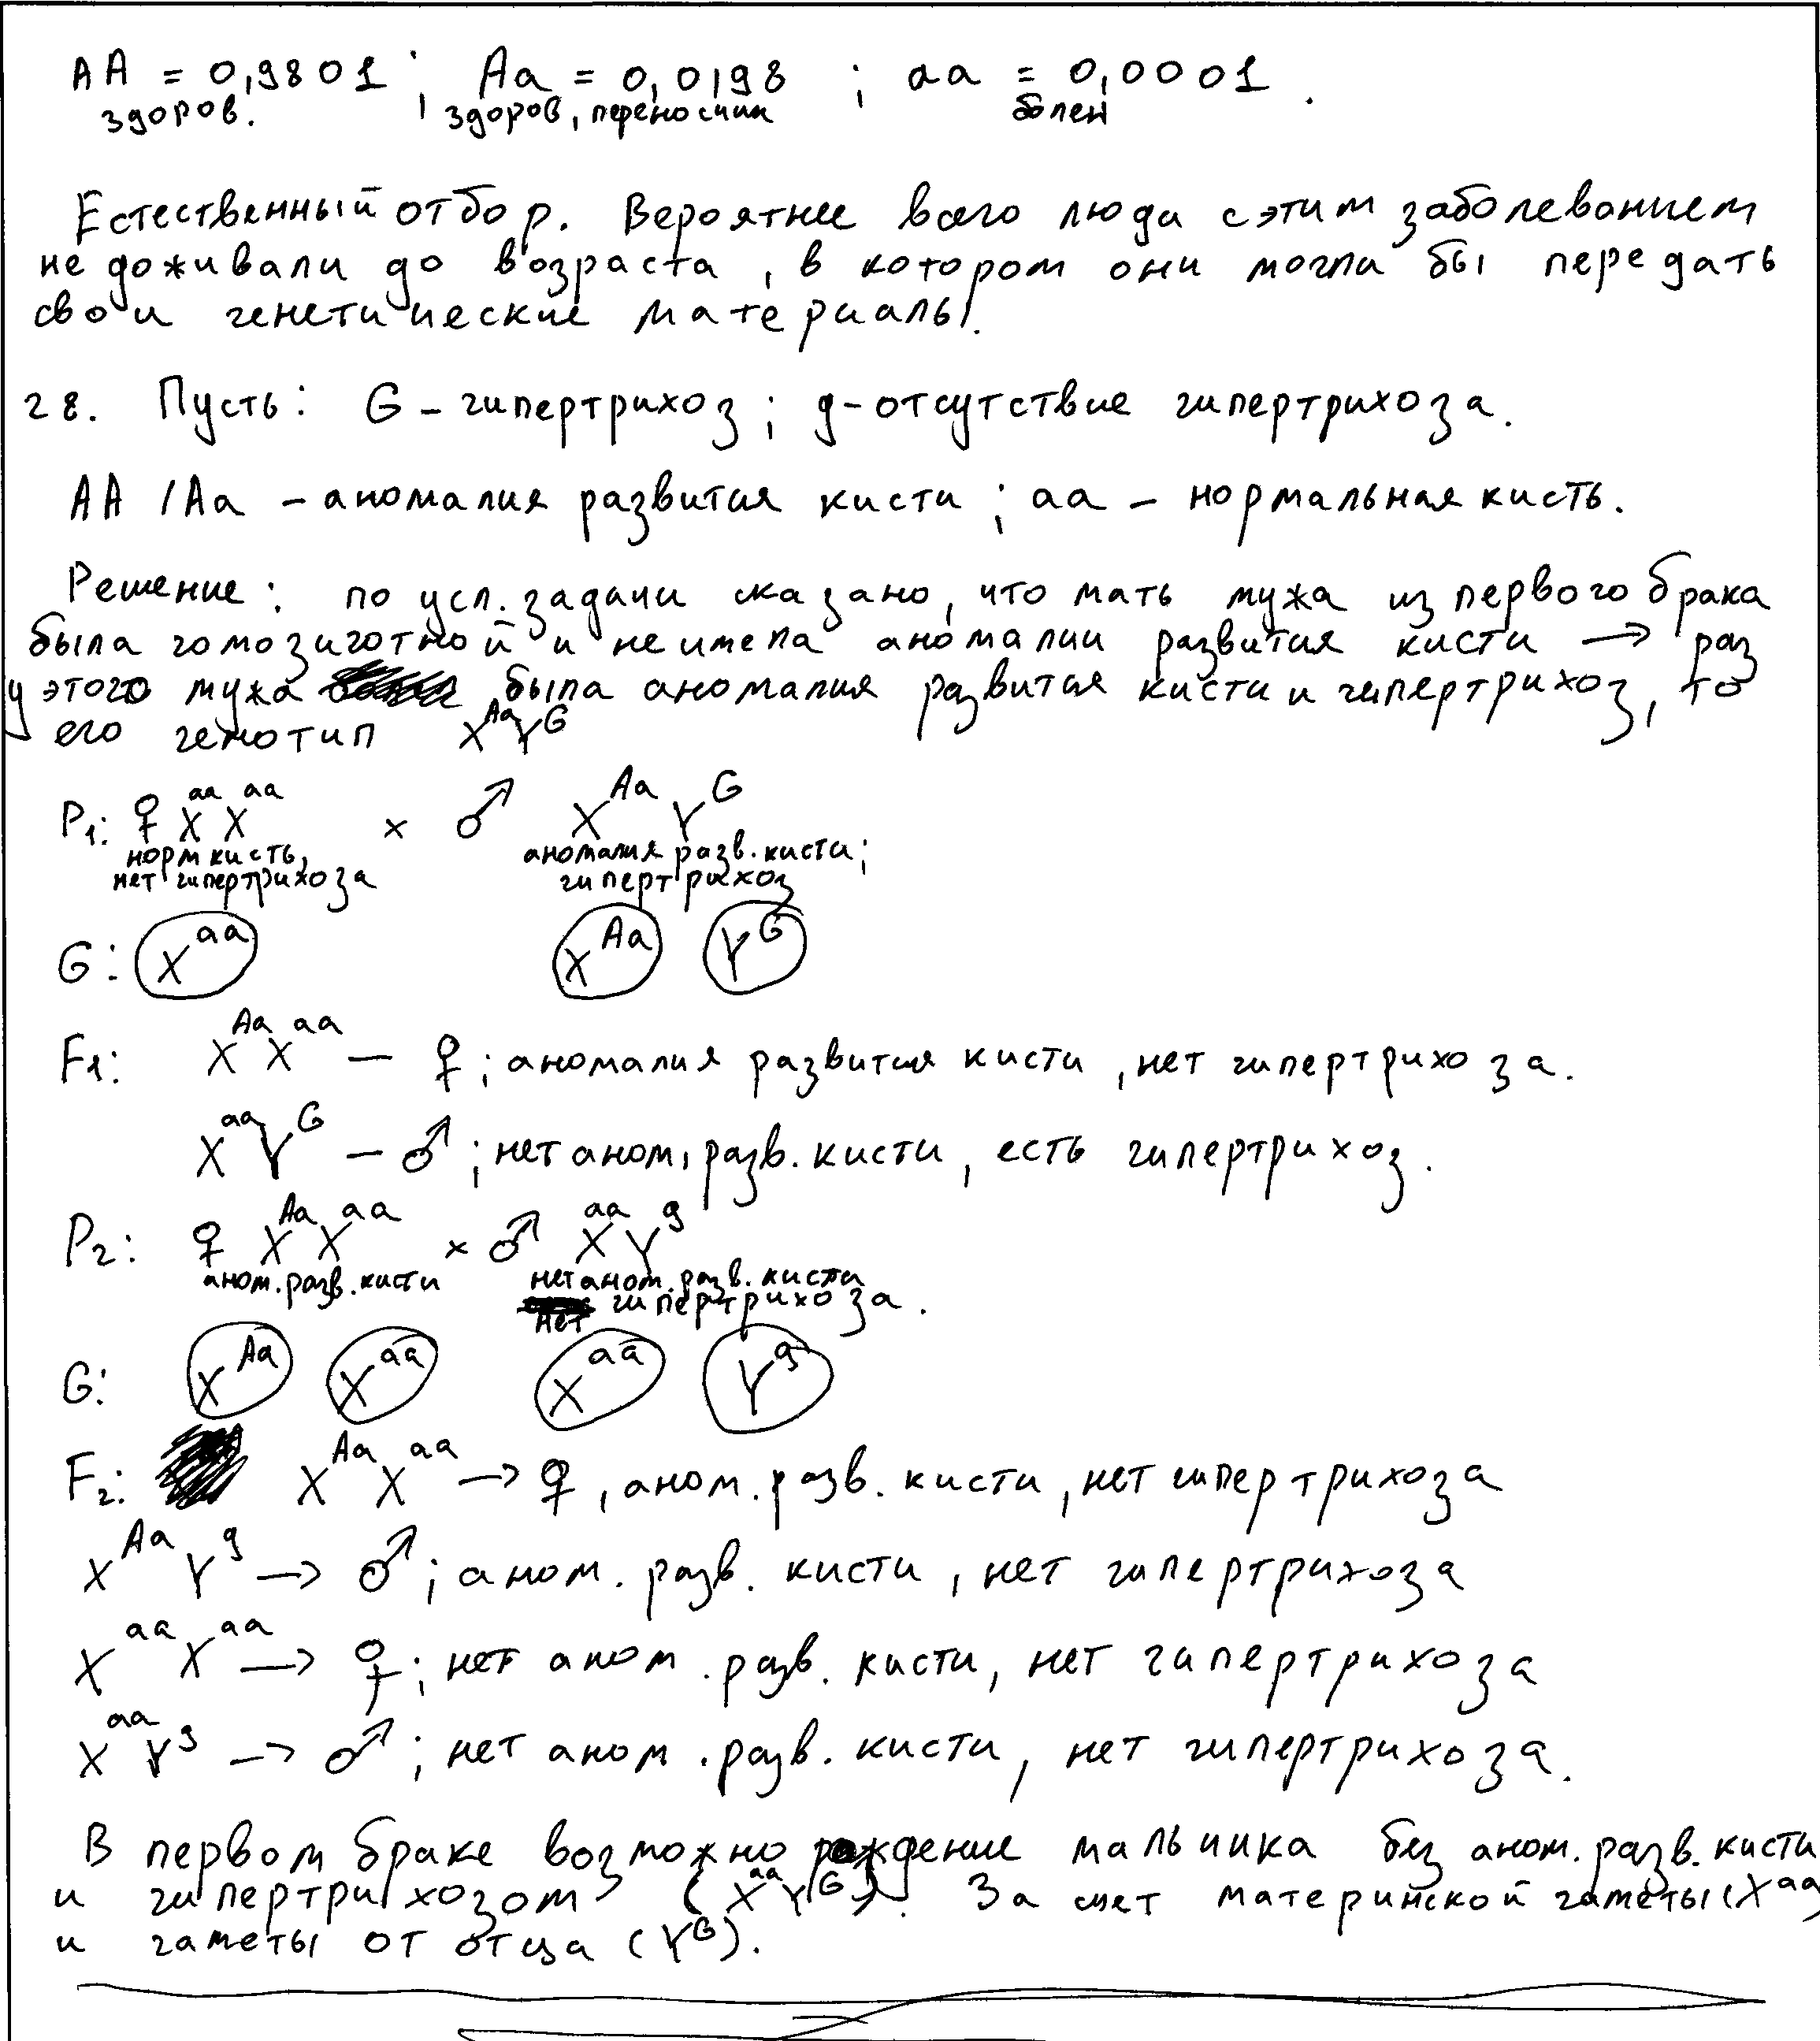 AA = 0,9801 ; Aa = 0,0198 ; aa = 0,0001 .
здоров. здоров, переносчик болен
Естественный отбор. Вероятнее всего люди с этим заболеванием
не доживали до возраста, в котором они могли бы передать
свои генетические материалы.
28. Пусть: G – гипертрихоз ; g – отсутствие гипертрихоза.
AA / Aa – аномалия развития кисти ; aa – нормальная кисть.
Решение: по усл. задачи сказано, что мать мужа из первого брака
была гомозиготной и не имела аномалии развития кисти → раз
у этого мужа была аномалия развития кисти и гипертрихоз, то
его генотип X^Aa Y^G
P1: ♀ X^aa X^aa × ♂ X^Aa Y^G
норм кисть, аномалия разв. кисти;
нет гипертрихоза гипертрихоз
G: X^aa X^Aa Y^G
F1: X^Aa X^aa — ♀ ; аномалия развития кисти, нет гипертрихоза.
X^aa Y^G — ♂ ; нет аном, разв. кисти, есть гипертрихоз.
P2: ♀ X^Aa X^aa × ♂ X^aa Y^g
аном. разв. кисти нет аном. разв. кисти
нет гипертрихоза.
G: X^Aa X^aa X^aa Y^g
F2: X^Aa X^aa → ♀, аном. разв. кисти, нет гипертрихоза
X^Aa Y^g → ♂ ; аном. разв. кисти, нет гипертрихоза
X^aa X^aa → ♀ ; нет аном. разв. кисти, нет гипертрихоза
X^aa Y^g → ♂ ; нет аном. разв. кисти, нет гипертрихоза.
В первом браке возможно рождение мальчика без аном. разв. кисти
и гипертрихозом (X^aa Y^G). За счет материнской гаметы (X^aa)
и гаметы от отца (Y^G).